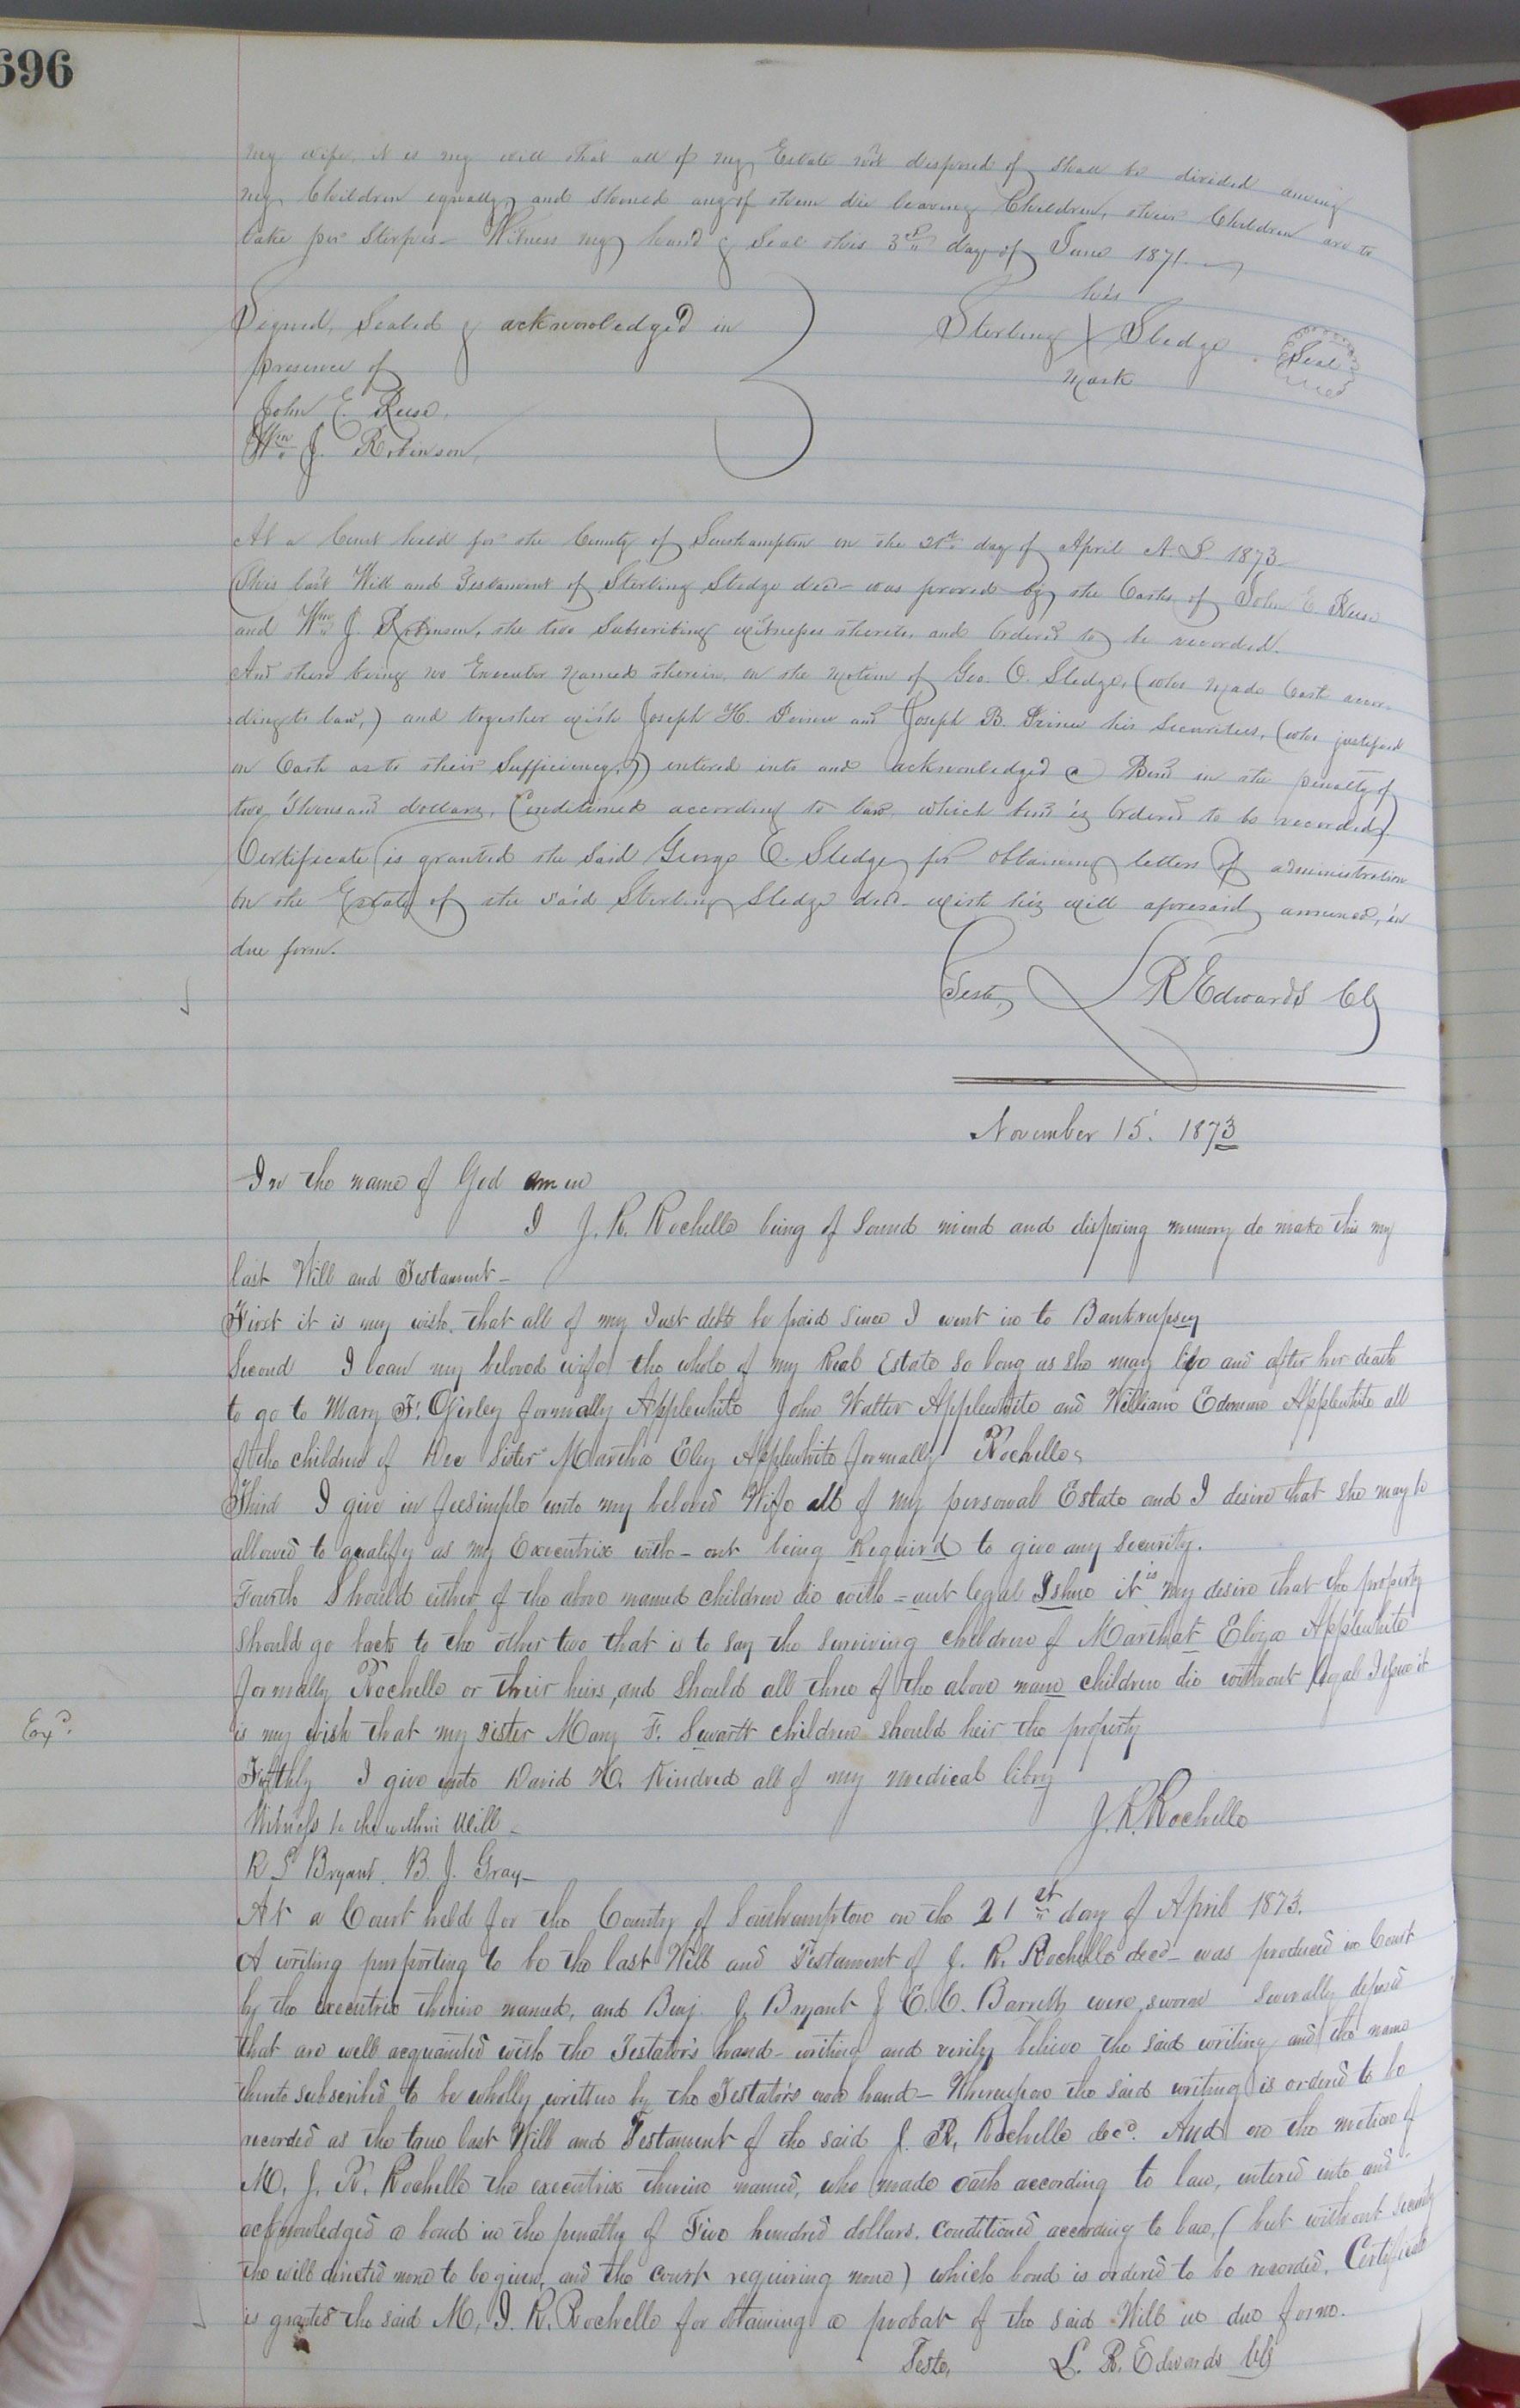 696
my wife, it is my will that all of my Estate not disposed of shall be divided among
my Children equally, and should any of them die leaving Children, their Children are to
take per Stirpes - Witness my hand & Seal this 3rd day of June 1871.
his
Signed, Sealed & acknowledged in Sterling X Sledge Seal
presence of mark
John E. Reese,
Wm J. Robinson,
At a Court held for the County of Southampton on the 21st day of April A.D. 1873
This last Will and Testament of Sterling Sledge decd - was proved by the Oaths of John E. Reese
and Wm J. Robinson, the two Subscribing witnesses thereto, and Ordered to be recorded.
And there being no Executor Named therein, on the Motion of Geo. E. Sledge, (who made Oath accor-
ding to law,) and together with Joseph H. Prince and Joseph B. Prince his Securities, (who justified
on Oath as to their Sufficiency,) entered into and acknowledged a Bond in the penalty of
two thousand dollars, Conditioned according to law, which bond is Ordered to be recorded,
Certificate is granted the said George E. Sledge for obtaining letters of administration
on the Estate of the said Sterling Sledge decd - with his will aforesaid annexed, in
due form.
Teste, L R Edwards Clk
November 15. 1873
In the name of God amen
I J. R. Rochelle being of Sound mind and disposing memory do make this my
last Will and Testament -
First it is my wish that all of my Just debts be paid since I went in to Bankrupsey
Second I loan my beloved wife the whole of my Real Estate so long as she may live and after her death
to go to Mary F. formally Applewhite John Walter Applewhite and William Edmund Applewhite all
of the children of Dec Sister Martha Eley Applewhite formally Rochelle
Third I give in feesimple unto my beloved Wife all of my personal Estate and I desire that she may be
allowed to qualify as my Executrix with-out being Requird to give any security.
Fourth Should either of the above named children die with=out legal Ishue it is my desire that the property
should go back to the other two that is to say the surviving children of Marthat Eliza Applewhite
formally Rochelle or their heirs, and should all three of the above name children die without legal Ishue it
Exd. is my wish that my sister Mary F. children should heir the property
Fifthly I give unto David H. Kindred all of my medical libry
Witness to the within Will - J. R. Rochelle
R S Bryant. B. J. Gray -
At a Court held for the County of Southampton on the 21st day of April 1873.
A writing purporting to be the last Will and Testament of J. R. Rochelle decd - was produced in Court
by the executrix therein named, and Benj. J. Bryant & E. C. Barrett were sworn severally deposed
that are well acquainted with the Testator's hand-writing and verily believe the said writing and the name
thereto subscribed to be wholly written by the Testators own hand - Whereupon the said writing is ordered to be
recorded as the true last Will and Testament of the said J. R. Rochelle decd. And on the motion of
M. J. R. Rochelle the executrix therein named, who made oath according to law, entered into and
acknowledged a bond in the penalty of Five hundred dollars. conditioned according to law, (but without security
the will directed none to be given, and the court requiring none) which bond is ordered to be recorded, Certificate
is granted the said M. J. R. Rochelle for obtaining a probat of the said Will in due form.
Teste, L. R. Edwards Clk